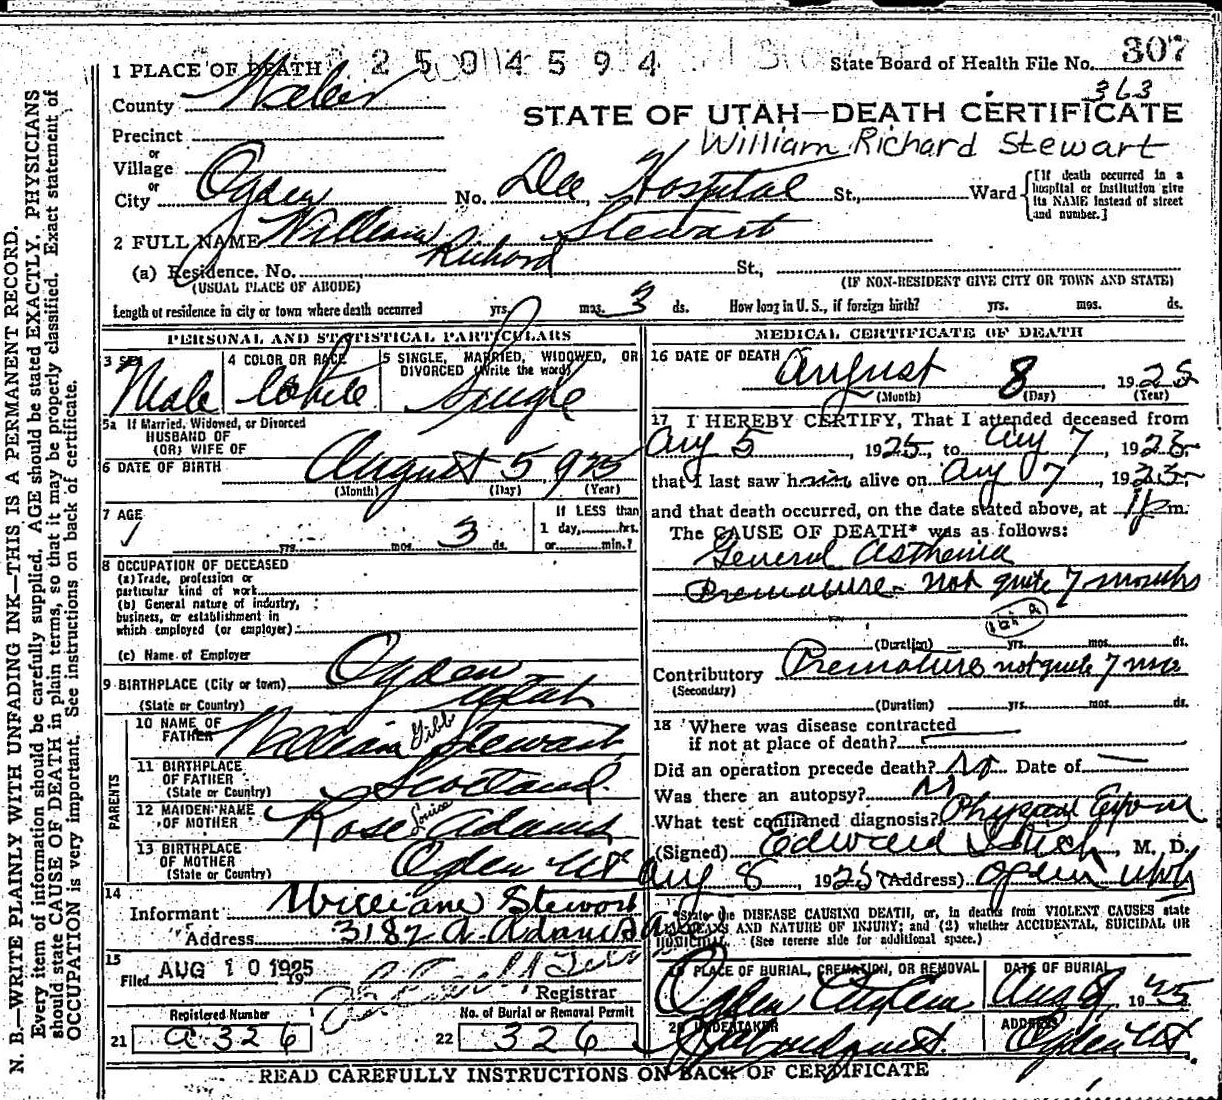 2504594
State Board of Health File No. 307
363
1 PLACE OF DEATH
County Weber
STATE OF UTAH—DEATH CERTIFICATE
William Richard Stewart
Precinct
or
Village
or
City Ogden No. Dee Hospital St., Ward
[If death occurred in a hospital or institution give its NAME instead of street and number.]
2 FULL NAME William Richard Stewart
(a) Residence. No. St.,
(USUAL PLACE OF ABODE) (IF NON-RESIDENT GIVE CITY OR TOWN AND STATE)
Length of residence in city or town where death occurred yrs. mos. 3 ds. How long in U. S., if foreign birth? yrs. mos. ds.
PERSONAL AND STATISTICAL PARTICULARS
3 SEX Male
4 COLOR OR RACE White
5 SINGLE, MARRIED, WIDOWED, OR DIVORCED (Write the word) Single
5a If Married, Widowed, or Divorced
HUSBAND OF
(OR) WIFE OF
6 DATE OF BIRTH August 5 925
(Month) (Day) (Year)
7 AGE yrs. mos. 3 ds.
If LESS than 1 day, hrs. or min.?
8 OCCUPATION OF DECEASED
(a) Trade, profession or particular kind of work
(b) General nature of industry, business, or establishment in which employed (or employer)
(c) Name of Employer
9 BIRTHPLACE (City or town) Ogden
(State or Country) Utah
PARENTS
10 NAME OF FATHER William Gibb Stewart
11 BIRTHPLACE OF FATHER (State or Country) Scotland
12 MAIDEN NAME OF MOTHER Rose Louise Adams
13 BIRTHPLACE OF MOTHER (State or Country) Ogden Ut
14
Informant William Stewart
Address 3182 Adams Ave
15
Filed AUG 10 1925 19
Registrar
Registered Number
21 a 326
No. of Burial or Removal Permit
22 326
MEDICAL CERTIFICATE OF DEATH
16 DATE OF DEATH August 8, 1925
(Month) (Day) (Year)
17 I HEREBY CERTIFY, That I attended deceased from
Aug 5, 1925, to Aug 7, 1925
that I last saw him alive on Aug 7, 1925
and that death occurred, on the date stated above, at 1 p m.
The CAUSE OF DEATH* was as follows:
General Asthenia
Premature - not quite 7 months
(Duration) yrs. mos. ds.
Contributory Premature not quite 7 mos
(Secondary)
(Duration) yrs. mos. ds.
18 Where was disease contracted
if not at place of death?
Did an operation precede death? No Date of
Was there an autopsy? No
What test confirmed diagnosis? Physical
(Signed) Edward, M. D.
Aug 8, 1925 (Address) Ogden Utah
*State the DISEASE CAUSING DEATH, or, in deaths from VIOLENT CAUSES state
MEANS AND NATURE OF INJURY; and (2) whether ACCIDENTAL, SUICIDAL OR
HOMICIDAL. (See reverse side for additional space.)
19 PLACE OF BURIAL, CREMATION, OR REMOVAL Ogden
DATE OF BURIAL Aug 8 1925
20 UNDERTAKER
ADDRESS Ogden Ut.
READ CAREFULLY INSTRUCTIONS ON BACK OF CERTIFICATE
N. B.—WRITE PLAINLY WITH UNFADING INK—THIS IS A PERMANENT RECORD.
Every item of information should be carefully supplied. AGE should be stated EXACTLY. PHYSICIANS
should state CAUSE OF DEATH in plain terms, so that it may be properly classified. Exact statement of
OCCUPATION is very important. See instructions on back of certificate.